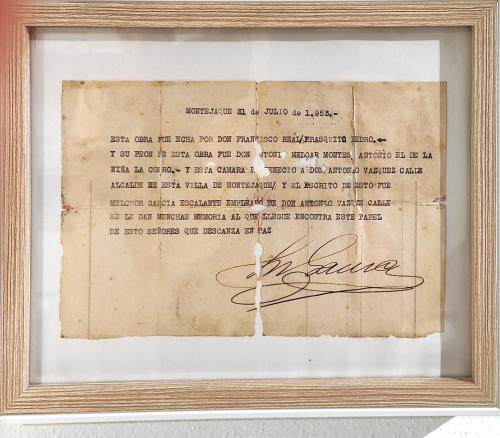 MONTEJAQUE 21 de JULIO de 1.953.-
ESTA OBRA FUE ECHA POR DON FRANCISCO REAL/FRASQUITO PEDRO.
Y SU PEON DE ESTA OBRA FUE DON ANTONI MELGAR MONTES, ANTONIO EL DE LA
NIÑA LA CORRO.- Y ESTA CAMARA DON ANTONLO VAZQUEZ CALLE
ALCALDE DE ESTA VILLA DE MONTEJAQUE/ Y EL ESCRITO DE ESTO FUE
MELCHOR GARCIA ESCALANTE EMPLEADO DE DON ANTONLO VAZUEZ CALLE
SE LE DAN MUNCHAS MEMORIA AL QUE LLEGUE ENCONTRA ESTE PAPEL
DE ESTO SEÑORES QUE DESCANZA EN PAZ